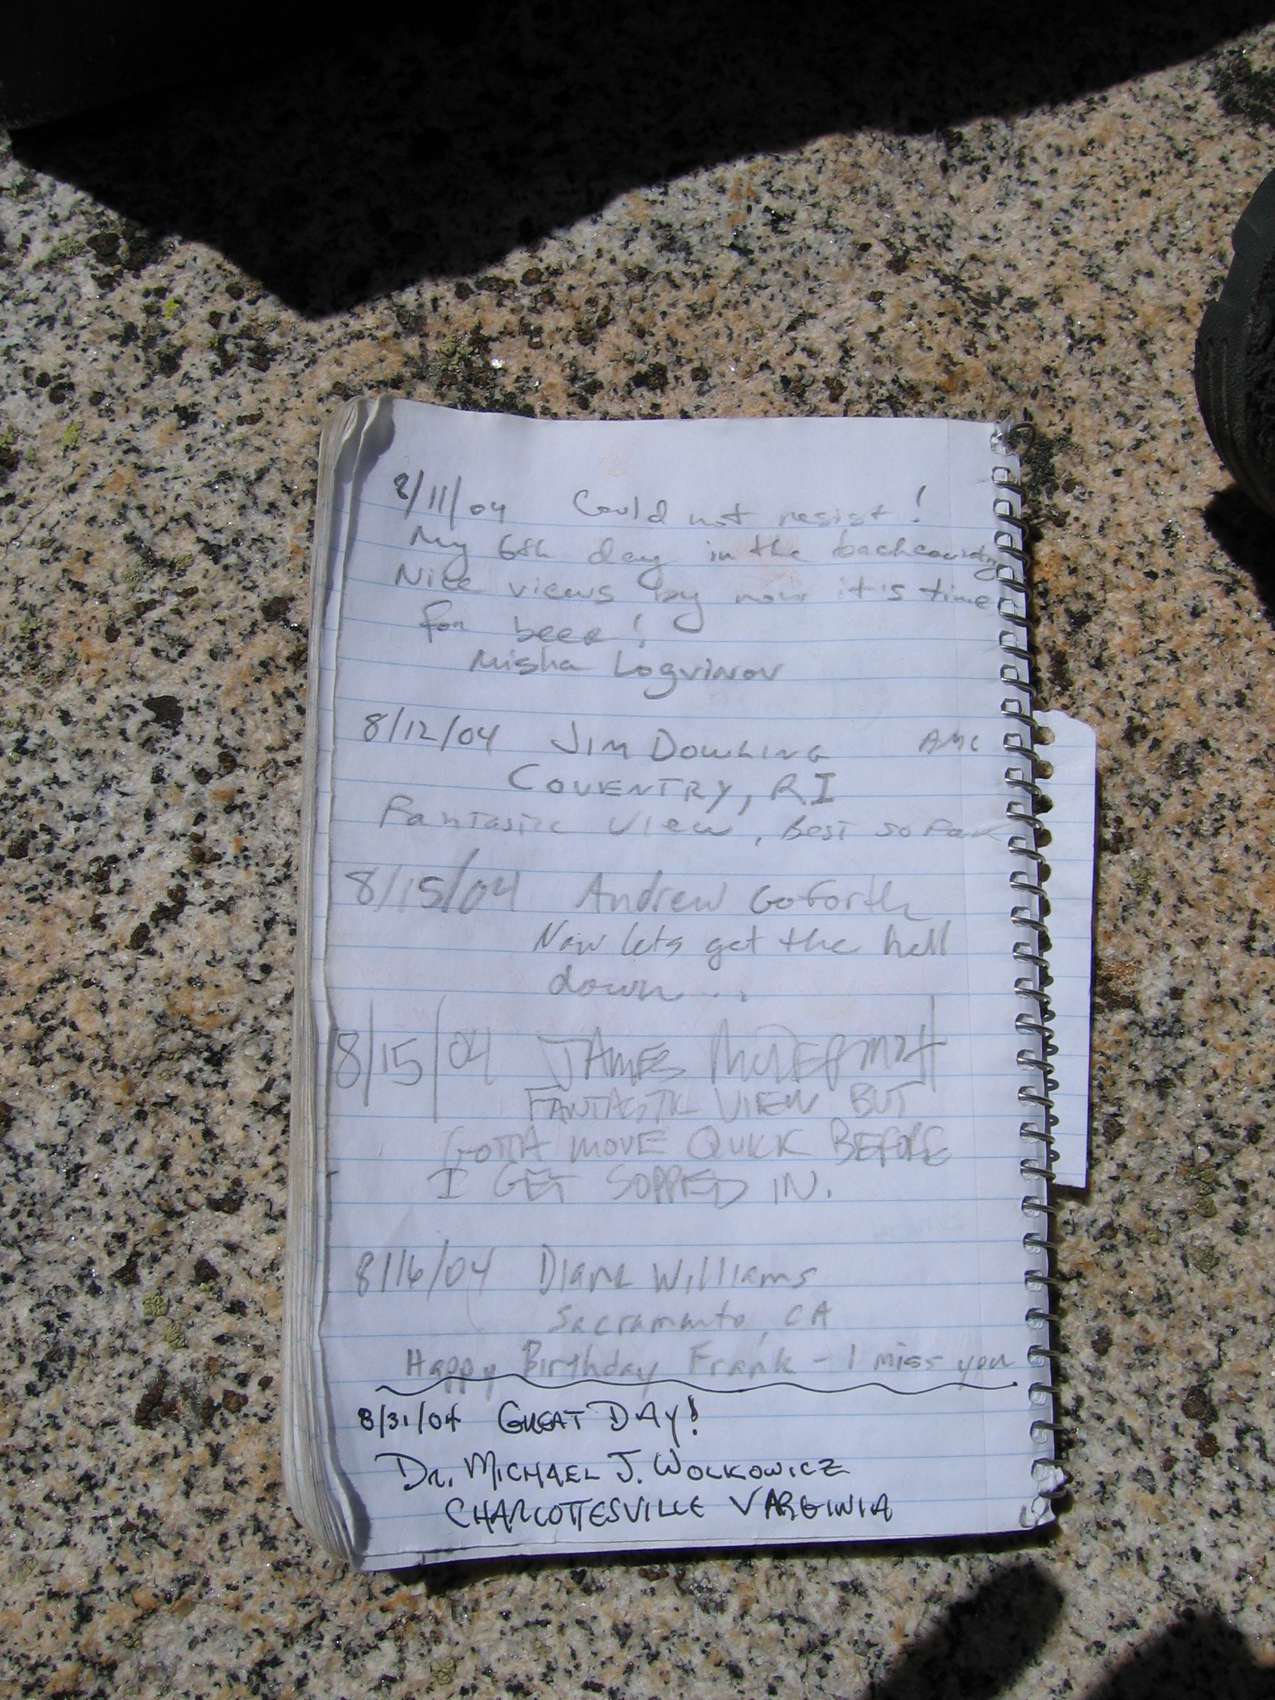 8/11/04 Could not resist!
My 6th day in the backcountry
Nice views by now it is time
for beer!
Misha Logvinov
8/12/04 Jim Dowling AMC
COVENTRY, RI
Fantastic View, Best so Far
8/15/04 Andrew Goforth
Now lets get the hell
down...
8/15/04 JAMES
FANTASTIC VIEW BUT
GOTTA MOVE QUICK BEFORE
I GET SOPPED IN.
8/16/04 Diane Williams
Sacramanto, CA
Happy Birthday Frank - I miss you
8/31/04 GREAT DAY!
DR. MICHAEL J. WOLKOWICZ
CHARLOTTESVILLE VARGINIA